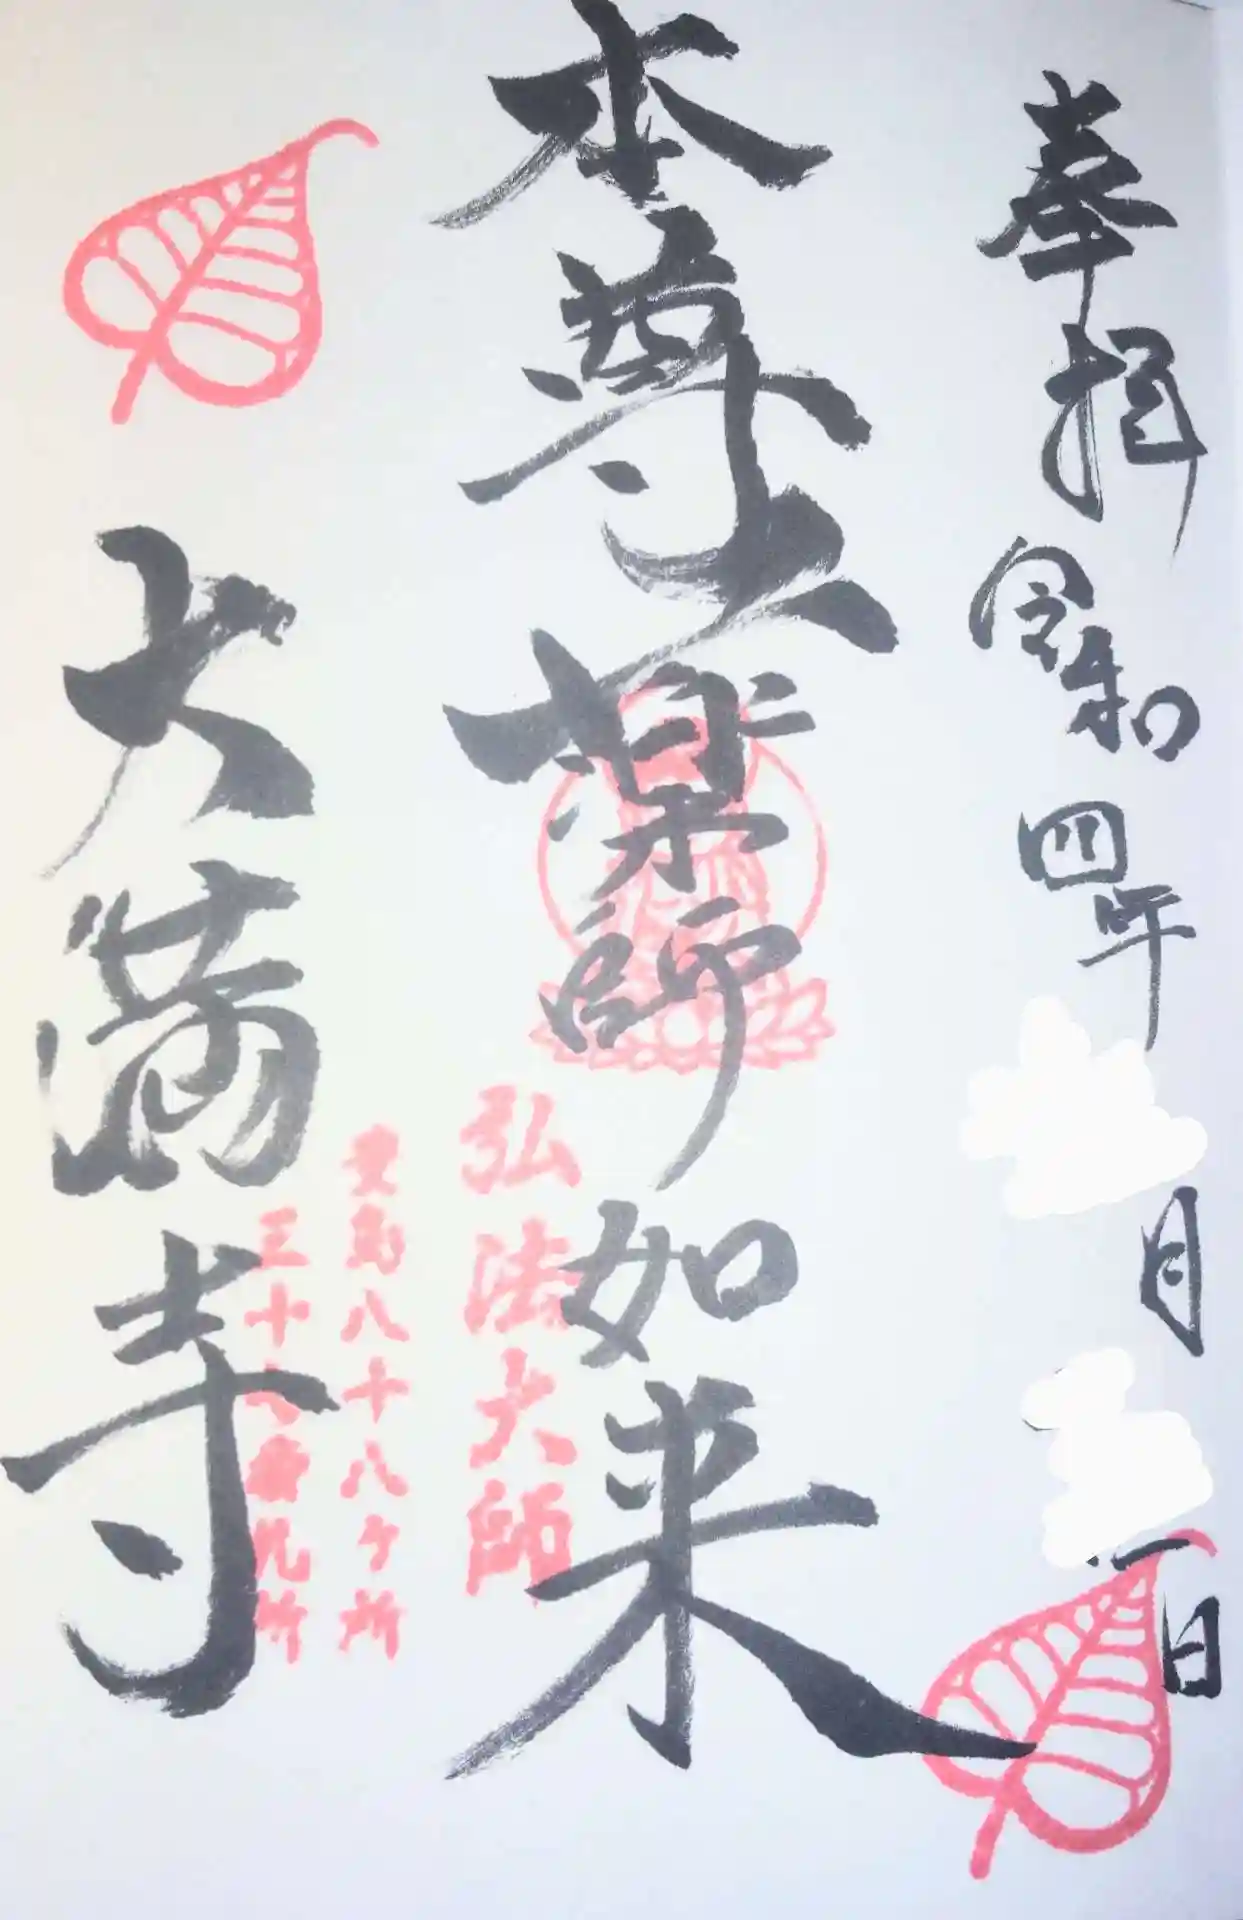 奉拝
令和四年
月
日
本尊
薬師如来
弘法大師
八十八ケ所
三十八番札所
大満寺